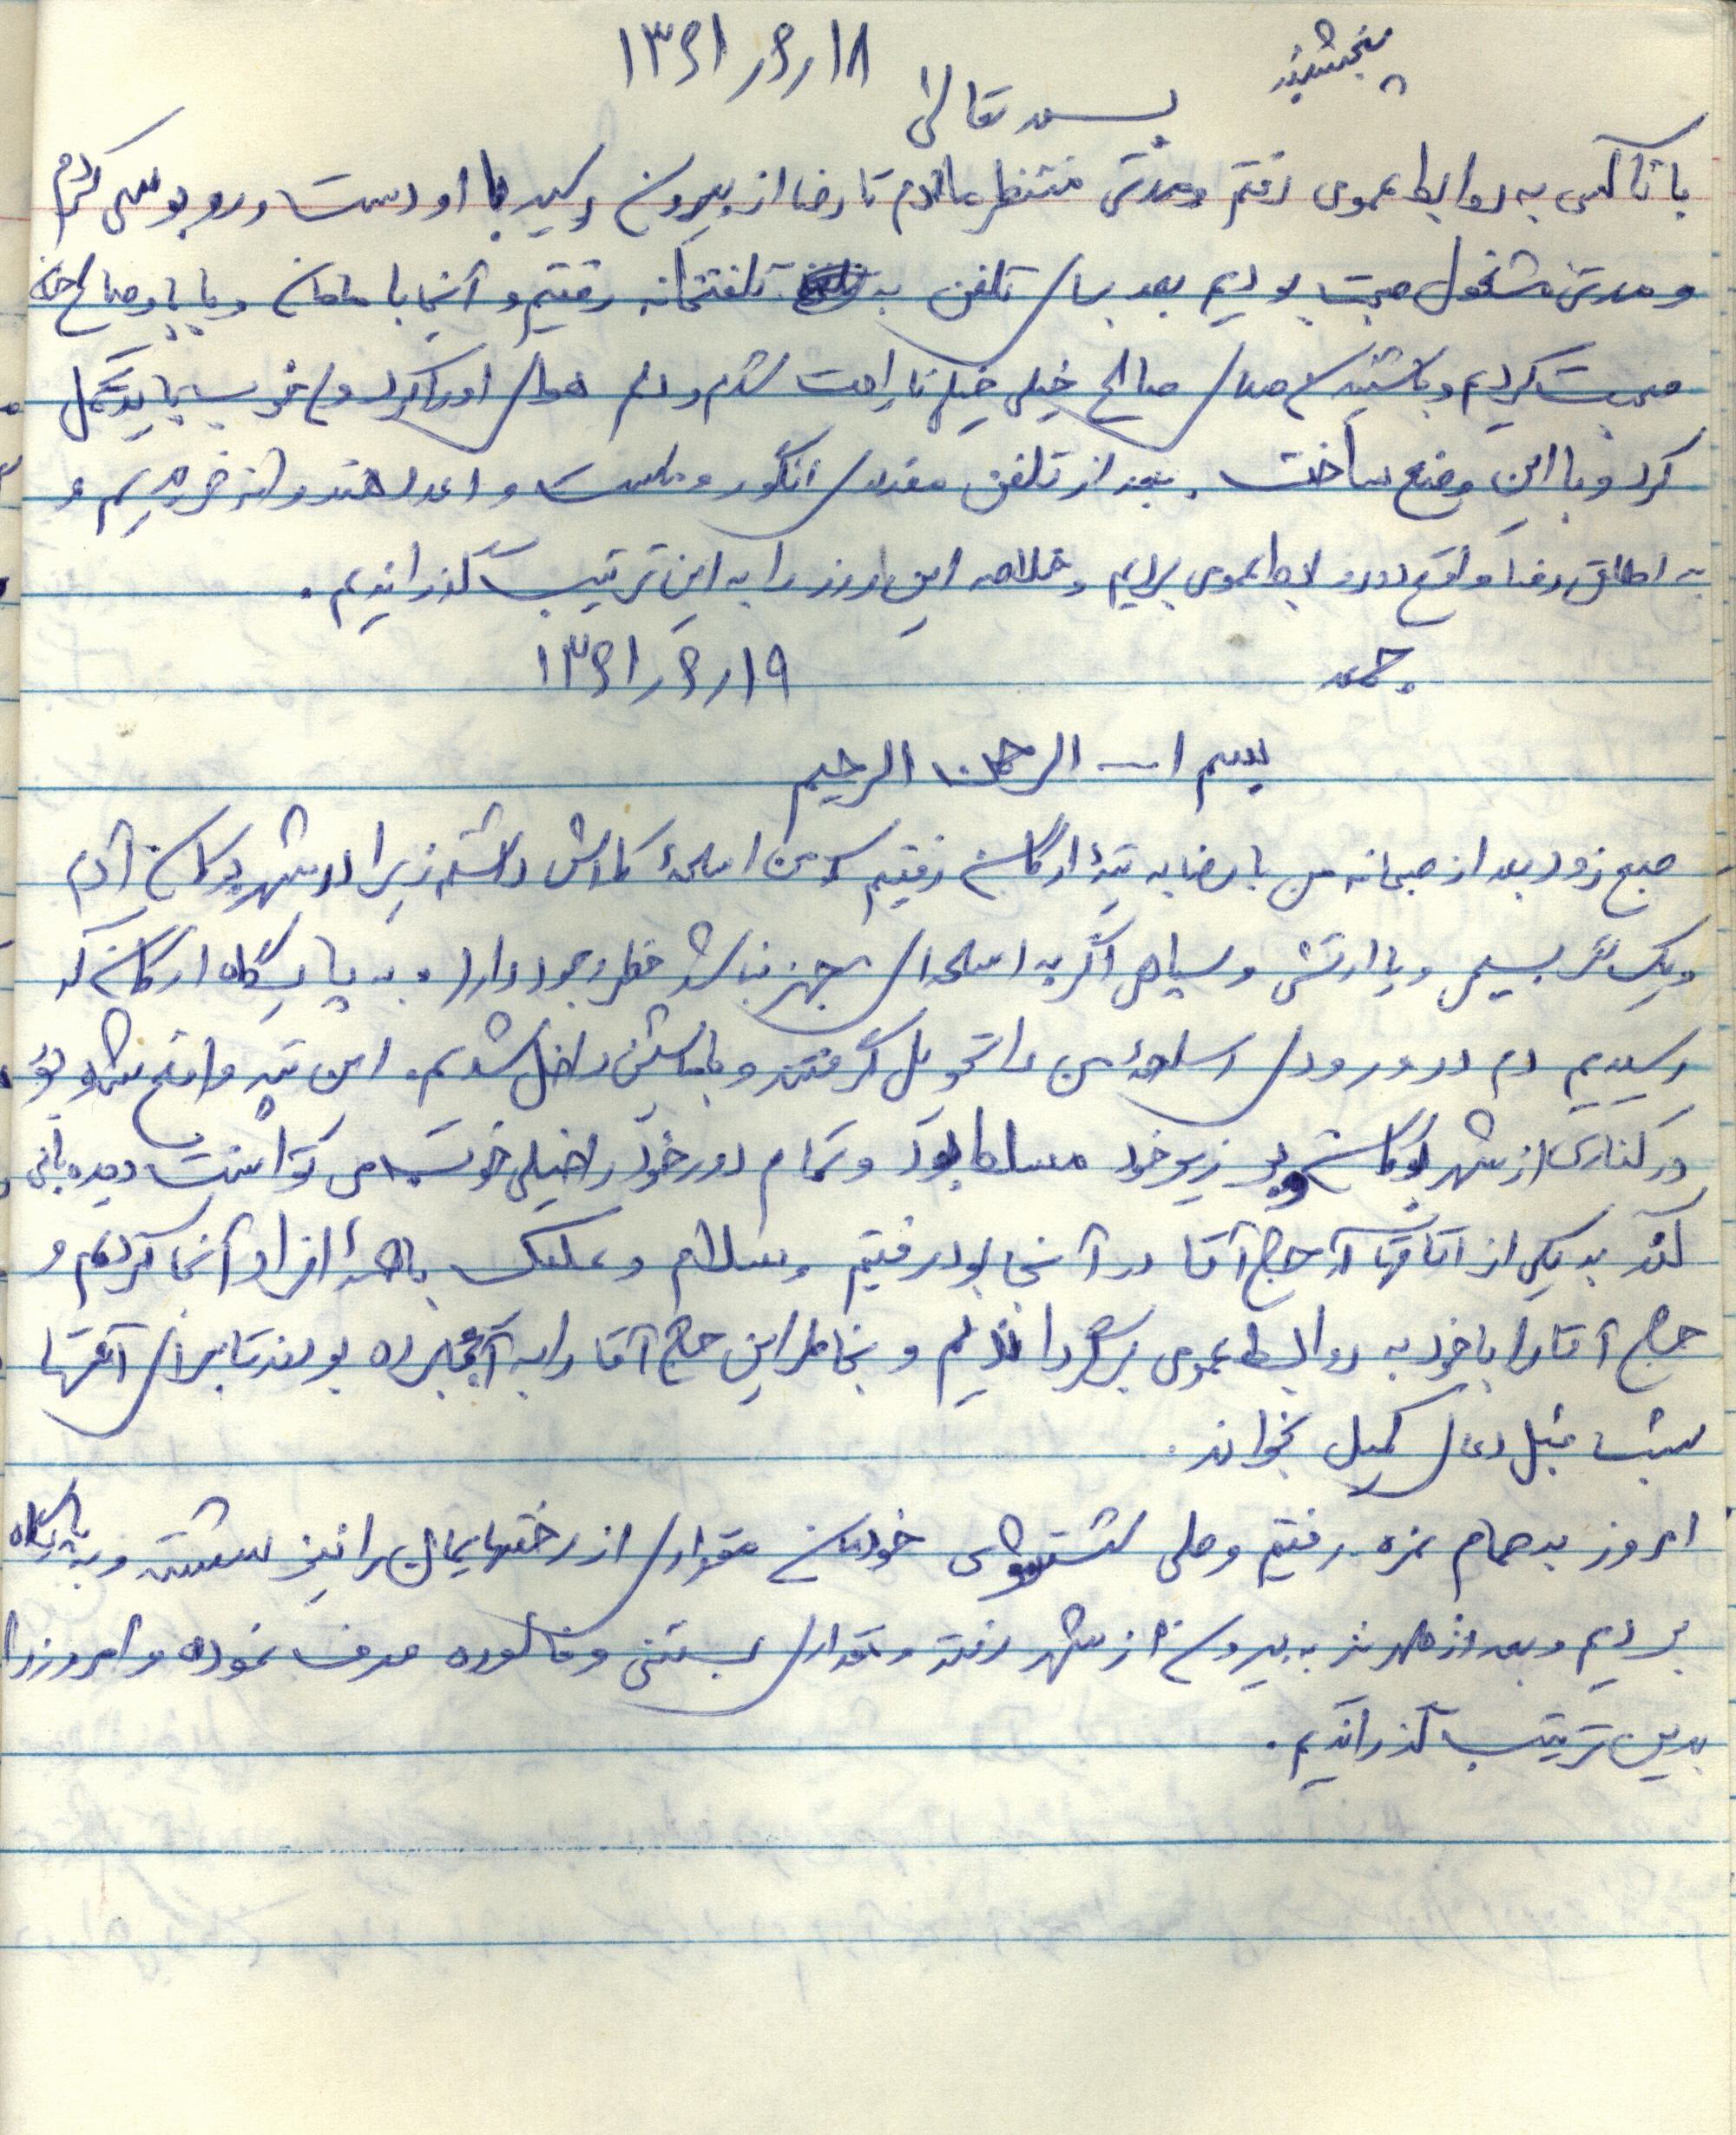 پنجشنبه ۱۸ر۶ر۱۳۶۱
بسمه تعالی
با تاکسی به روابط عمومی رفتم و مدتی منتظر ماندم تا رضا از بیرون رسید با او دست و روبوسی کردم
و مدتی مشغول صحبت بودیم بعد برای تلفن به تلفنخانه رفتیم و آنجا با مامان و بابا و صالح جان
صحبت کردیم و با شنیدن صدای صالح خیلی خیلی ناراحت شدم و دلم هوای او را کرد ولی خوب باید تحمل
کرد و با این وضع ساخت. بعد از تلفن مقداری انگور و ماست و اعدد هندوانه خریدیم و
به اطاق رضا واقع در روابط عمومی بردیم و خلاصه این روز را به این ترتیب گذراندیم.
جمعه ۱۹ر۶ر۱۳۶۱
بسم ا... الرحمن الرحیم
صبح زود بعد از صبحانه من با رضا به تپهٔ ارگان رفتیم که من اسلحهٔ کلاش داشتم زیرا در شهر بوکان آدم
و یک نفر بسیجی و یا ارتشی و سپاهی اگر به اسلحه‌ای مجهز نباشد خطر وجود دارد. به پایگاه ارگان که
رسیدیم دم در ورودی اسلحهٔ من را تحویل گرفتند و با ماشین داخل شدیم. این تپه واقع شده بود
در کناری از شهر بوکان و بر زیر خود مسلط بود و تمام دور خود را خیلی خوب می توانست دیده بانی
کند به یکی از اتاقها که حاج آقا در آنجا بود رفتیم و سلام و علیک با همهٔ افراد آنجا کردیم و
حاج آقا را با خود به روابط عمومی برگرداندیم و بخاطر این حاج آقا را به آنجا برده بودند تا برای آنها
شب قبل دعای کمیل بخواند.
امروز به حمام نمره رفتیم و طی شستشوی خودمان مقداری از رختهایمان را نیز شسته و به پایگاه
بردیم و بعد از ظهر نیز به بیرون از شهر رفته و مقداری بستنی و فالوده صرف نموده و امروز را
بدین ترتیب گذراندیم.